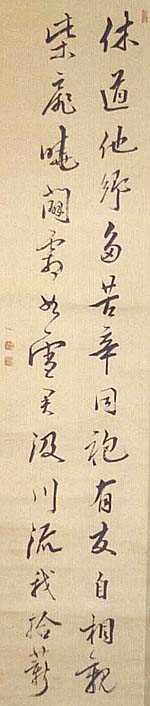 休道他鄉多苦辛同袍有友自相親
柴扉曉開霜如雪君汲川流我拾薪